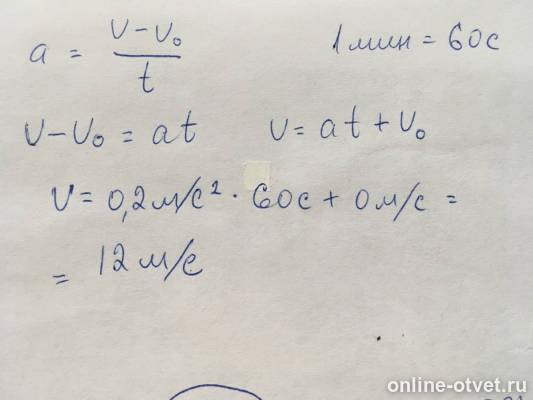 a = (v - v₀) / t 1 мин = 60с
v - v₀ = at v = at + v₀
v = 0,2 м/с² · 60с + 0 м/с =
= 12 м/с
online-otvet.ru